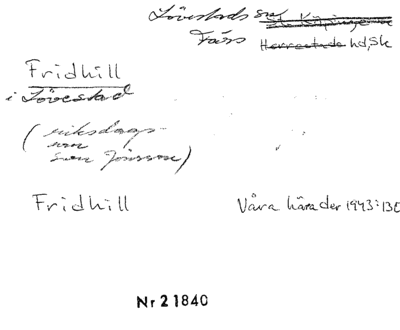 Lövestads sn
Färs hd, Sk
Fridhill
i Lövestad
(riksdags-
man
Sven Jönsson)
Fridhill Våra härader 1943:130
Nr 21840